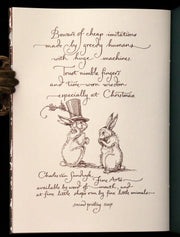 Beware of cheap imitations
made by greedy humans
with huge machines.
Trust nimble fingers
and time-worn wisdom
especially at Christmas
Charles van Sandwyk Fine Arts
available by word of mouth, and
at fine little shops run by fine little animals.